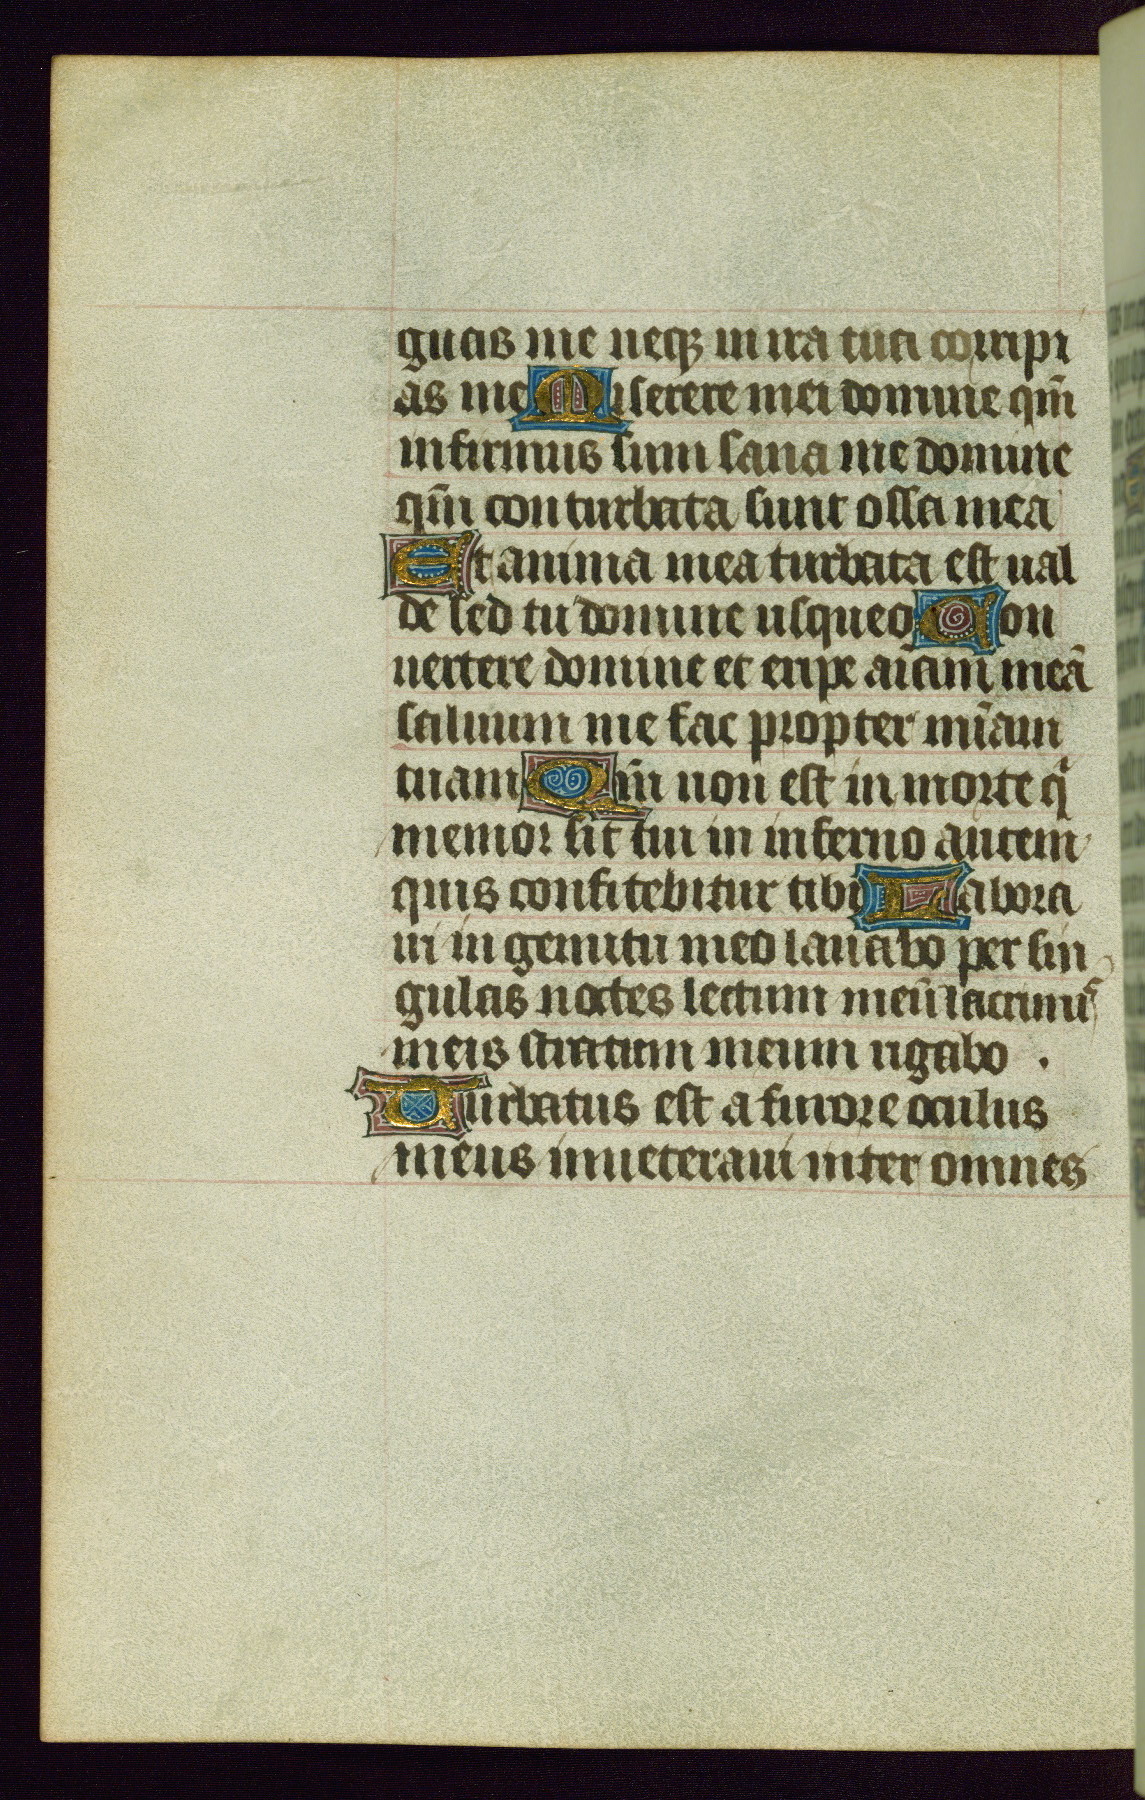 guas me neqꝫ in ira tua corripi
as me Miserere mei domine qm̄
infirmus sum sana me domine
qm̄ conturbata sunt ossa mea
Et anima mea turbata est ual
de sed tu domine usqueq Con
uertere domine et eripe aīam meā
saluum me fac propter mīam
tuam Qm̄ non est in morte qi
memor sit tui in inferno autem
quis confitebitur tibi Labora
ui in gemitu meo lauabo per sin
gulas noctes lectum meū lacrimis
meis stratum meum rigabo .
Turbatus est a furore oculus
meus inueteraui inter omnes